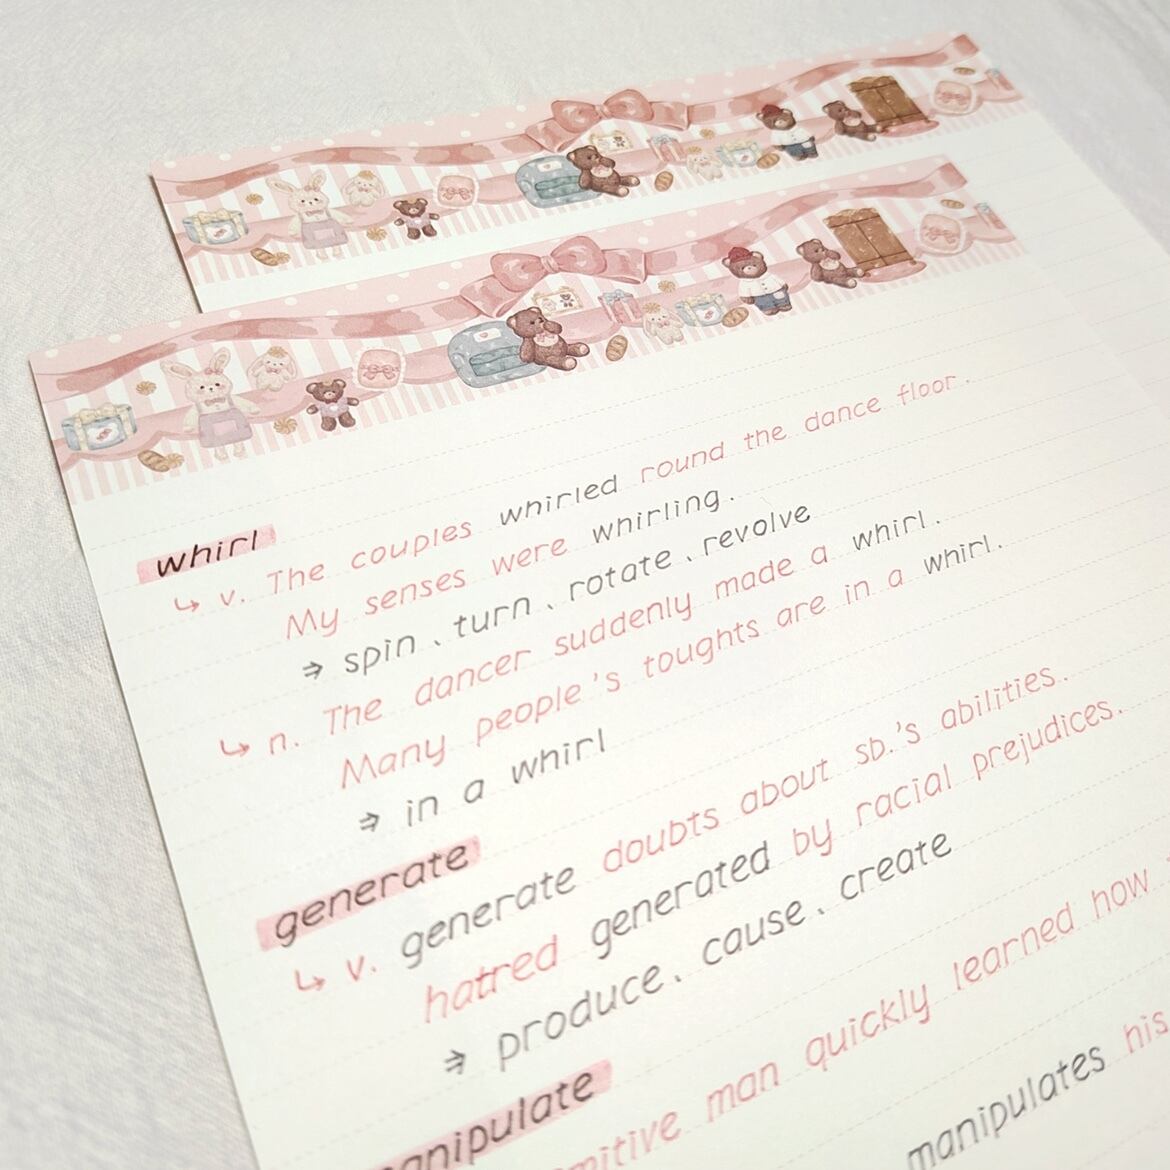 whirl
↳ v. The couples whirled round the dance floor.
My senses were whirling.
⇒ spin、turn、rotate、revolve
↳ n. The dancer suddenly made a whirl.
Many people's toughts are in a whirl.
⇒ in a whirl
generate
↳ v. generate doubts about sb.'s abilities.
hatred generated by racial prejudices.
⇒ produce、cause、create
man quickly learned how
manipulates his